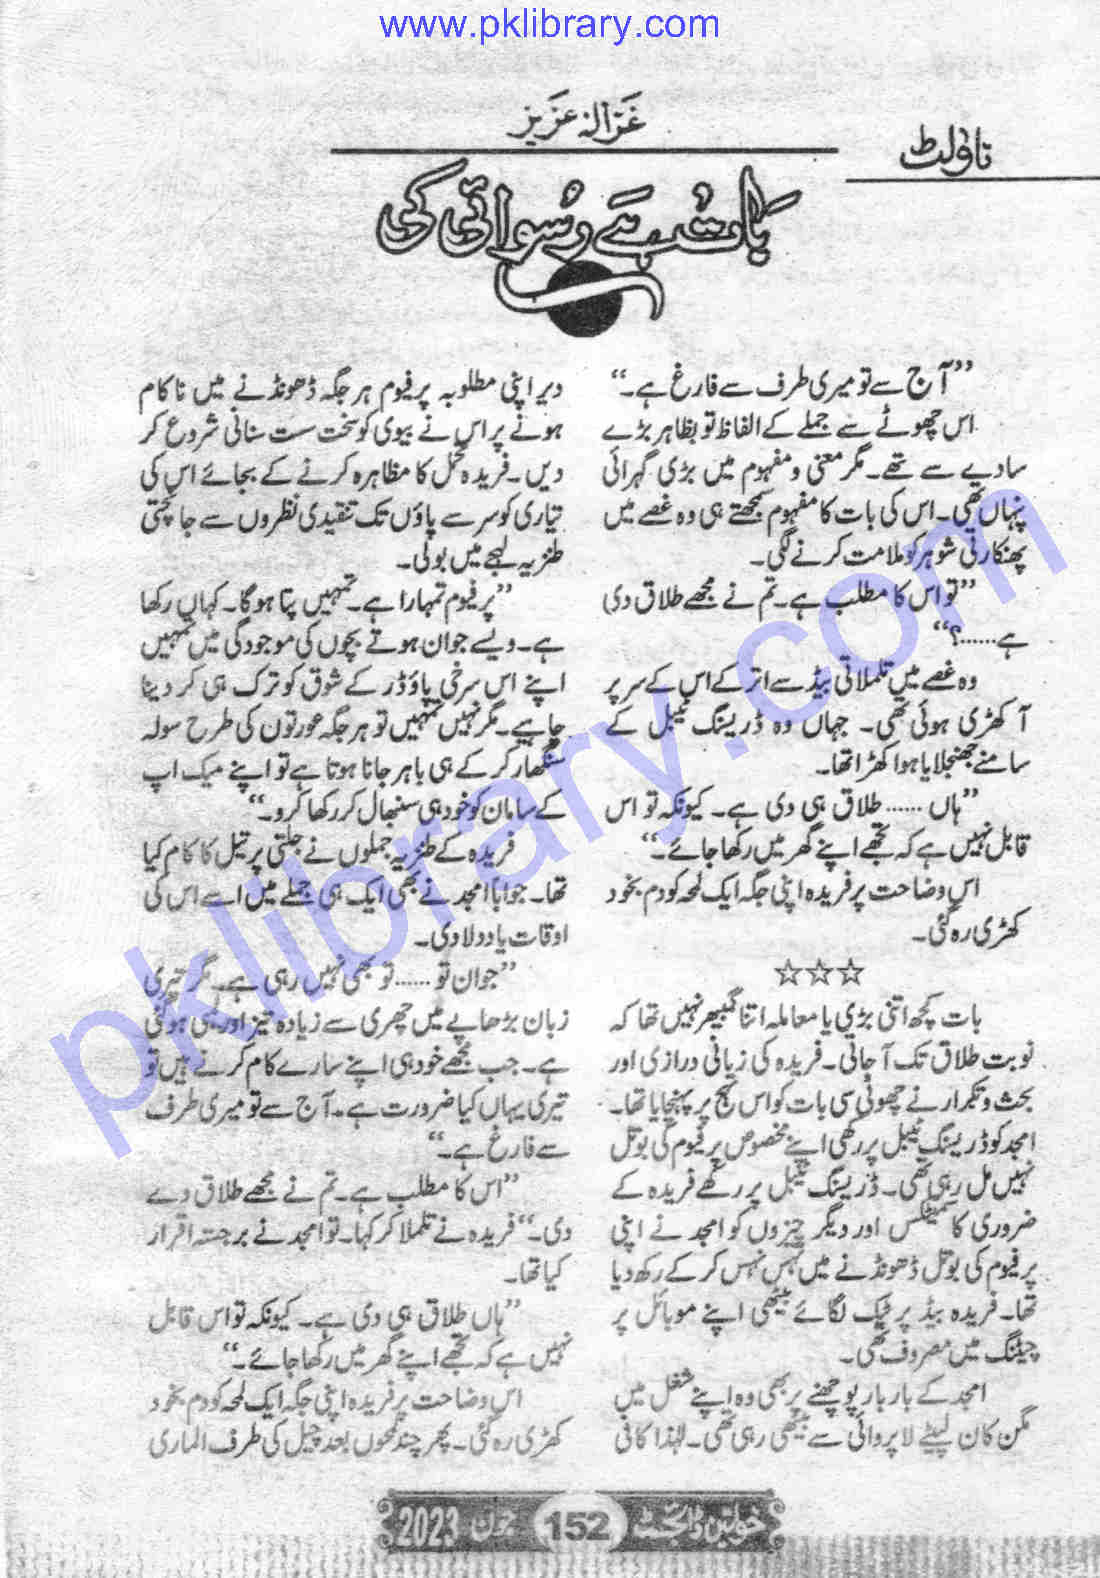 www.pklibrary.com
غزالہ عزیز
ناولٹ
بات ہے رسوائی کی
”آج سے تو میری طرف سے فارغ ہے۔“
اس چھوٹے سے جملے کے الفاظ تو بظاہر بڑے
سادے سے تھے۔ مگر معنی و مفہوم میں بڑی گہرائی
پنہاں تھی۔ اس کی بات کا مفہوم سمجھتے ہی وہ غصے میں
پھنکارتی شوہر کو ملامت کرنے لگی۔
”تو اس کا مطلب ہے۔ تم نے مجھے طلاق دی
ہے......؟“
وہ غصے میں تلملاتی بیڈ سے اتر کے اس کے سر پر
آ کھڑی ہوئی تھی۔ جہاں وہ ڈریسنگ ٹیبل کے
سامنے جھنجلایا ہوا کھڑا تھا۔
”ہاں ...... طلاق ہی دی ہے۔ کیونکہ تو اس
قابل نہیں ہے کہ تجھے اپنے گھر میں رکھا جائے۔“
اس وضاحت پر فریدہ اپنی جگہ ایک لمحہ کو دم بخود
کھڑی رہ گئی۔
☆☆☆
بات کچھ اتنی بڑی یا معاملہ اتنا گمبھیر نہیں تھا کہ
نوبت طلاق تک آ جاتی۔ فریدہ کی زبانی درازی اور
بحث و تکرار نے چھوٹی سی بات کو اس نہج پر پہنچایا تھا۔
امجد کو ڈریسنگ ٹیبل پر رکھی اپنے مخصوص پرفیوم کی بوتل
نہیں مل رہی تھی۔ ڈریسنگ ٹیبل پر رکھے فریدہ کے
ضروری کاسمیٹکس اور دیگر چیزوں کو امجد نے اپنی
پرفیوم کی بوتل ڈھونڈنے میں تہس نہس کر کے رکھ دیا
تھا۔ فریدہ بیڈ پر ٹیک لگائے بیٹھی اپنے موبائل پر
چیٹنگ میں مصروف تھی۔
امجد کے بار بار پوچھنے پر بھی وہ اپنے شغل میں
مگن کان لپیٹے لاپروائی سے بیٹھی رہی تھی۔ لہٰذا کافی
دیر اپنی مطلوبہ پرفیوم ہر جگہ ڈھونڈنے میں ناکام
ہونے پر اس نے بیوی کو سخت ست سنانی شروع کر
دیں۔ فریدہ تحمل کا مظاہرہ کرنے کے بجائے اس کی
تیاری کو سر سے پاؤں تک تنقیدی نظروں سے جانچتی
طنزیہ لہجے میں بولی۔
”پرفیوم تمہارا ہے۔ تمہیں پتا ہوگا۔ کہاں رکھا
ہے۔ ویسے جوان ہوتے بچوں کی موجودگی میں تمہیں
اپنے اس سرخی پاؤڈر کے شوق کو ترک ہی کر دینا
چاہیے۔ مگر نہیں تمہیں تو ہر جگہ عورتوں کی طرح سولہ
سنگھار کر کے ہی باہر جانا ہوتا ہے تو اپنے میک اپ
کے سامان کو خود ہی سنبھال کر رکھا کرو۔“
فریدہ کے طنزیہ جملوں نے جلتی پر تیل کا کام کیا
تھا۔ جواباً امجد نے بھی ایک ہی جملے میں اسے اس کی
اوقات یاد دلا دی۔
”جوان تو ...... تو بھی نہیں رہی ہے۔ مگر تیری
زبان بڑھاپے میں چھری سے زیادہ تیز اور ہی ہوگئی
ہے۔ جب مجھے خود ہی اپنے سارے کام کرنے ہیں تو
تیری یہاں کیا ضرورت ہے۔ آج سے تو میری طرف
سے فارغ ہے۔“
”اس کا مطلب ہے۔ تم نے مجھے طلاق دے
دی۔“ فریدہ نے تلملا کر کہا۔ تو امجد نے برجستہ اقرار
کیا تھا۔
”ہاں طلاق ہی دی ہے۔ کیونکہ تو اس قابل
نہیں ہے کہ تجھے اپنے گھر میں رکھا جائے۔“
اس وضاحت پر فریدہ اپنی جگہ ایک لمحہ کو دم بخود
کھڑی رہ گئی۔ پھر چند لمحوں بعد چیل کی طرف الماری
خواتین ڈائجسٹ 152 جون 2023
pklibrary.com